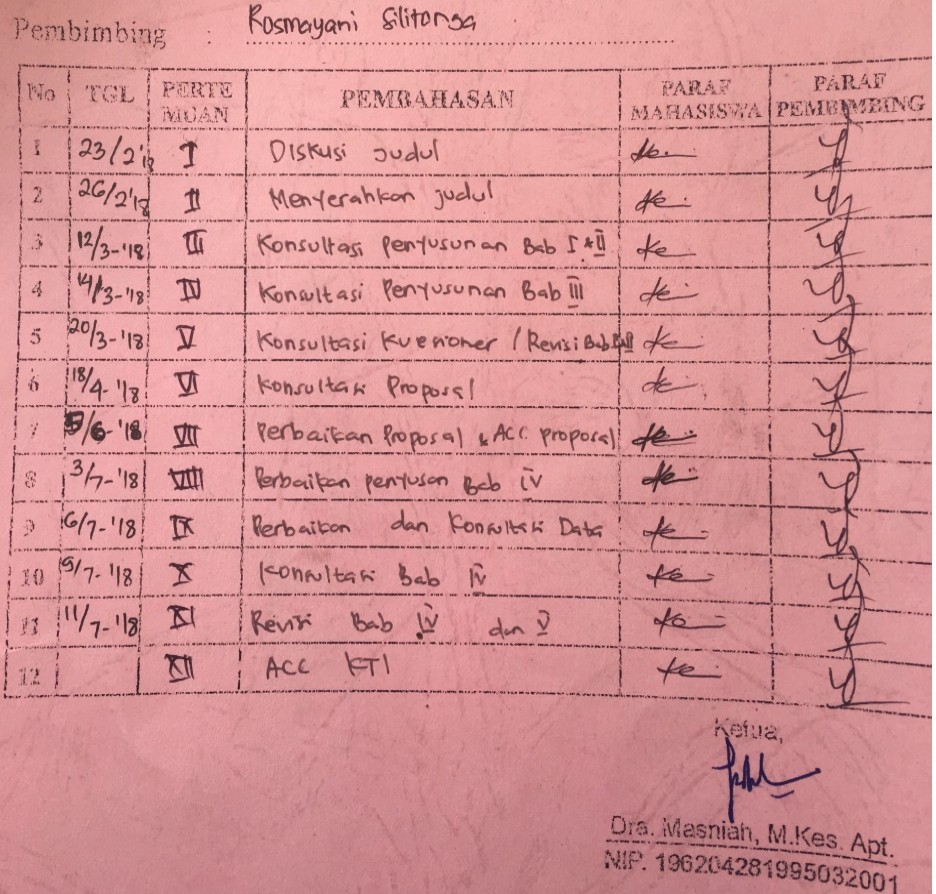 Pembimbing : Rosmayani Silitonga
No TGL PERTE MUAN PEMBAHASAN PARAF MAHASISWA PARAF PEMBIMBING
1 23/2'18 I Diskusi judul
2 26/2'18 II Menyerahkan judul
3 12/3-'18 III Konsultasi Penyusunan Bab I & II
4 14/3-'18 IV Konsultasi Penyusunan Bab III
5 20/3-'18 V Konsultasi Kuesioner / Revisi Bab
6 18/4-'18 VI Konsultasi Proposal
7 5/6-'18 VII Perbaikan Proposal & ACC proposal
8 3/7-'18 VIII Perbaikan penyusan Bab IV
9 6/7-'18 IX Perbaikan dan Konsultasi Data
10 9/7-'18 X Konsultasi Bab IV
11 11/7-'18 XI Revisi Bab IV dan V
12 XII ACC KTI
Ketua,
Dra. Masniah, M.Kes. Apt.
NIP. 196204281995032001